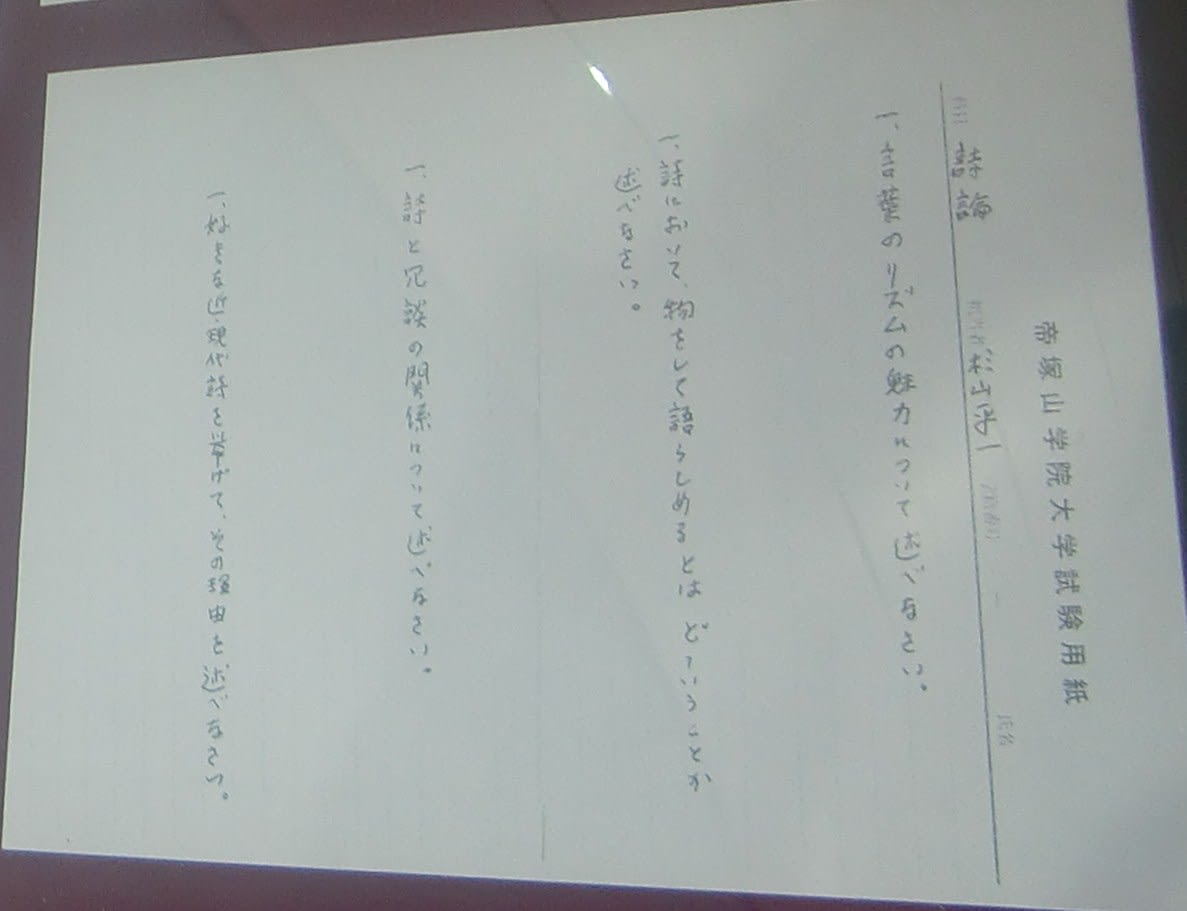 帝塚山学院大学試験用紙
科目 詩論 担当者 杉山平一 氏名
一、言葉のリズムの魅力について述べなさい。
一、詩において、物をして語らしめるとはどういうことか
述べなさい。
一、詩と冗談の関係について述べなさい。
一、好きな近・現代詩を挙げて、その理由を述べなさい。